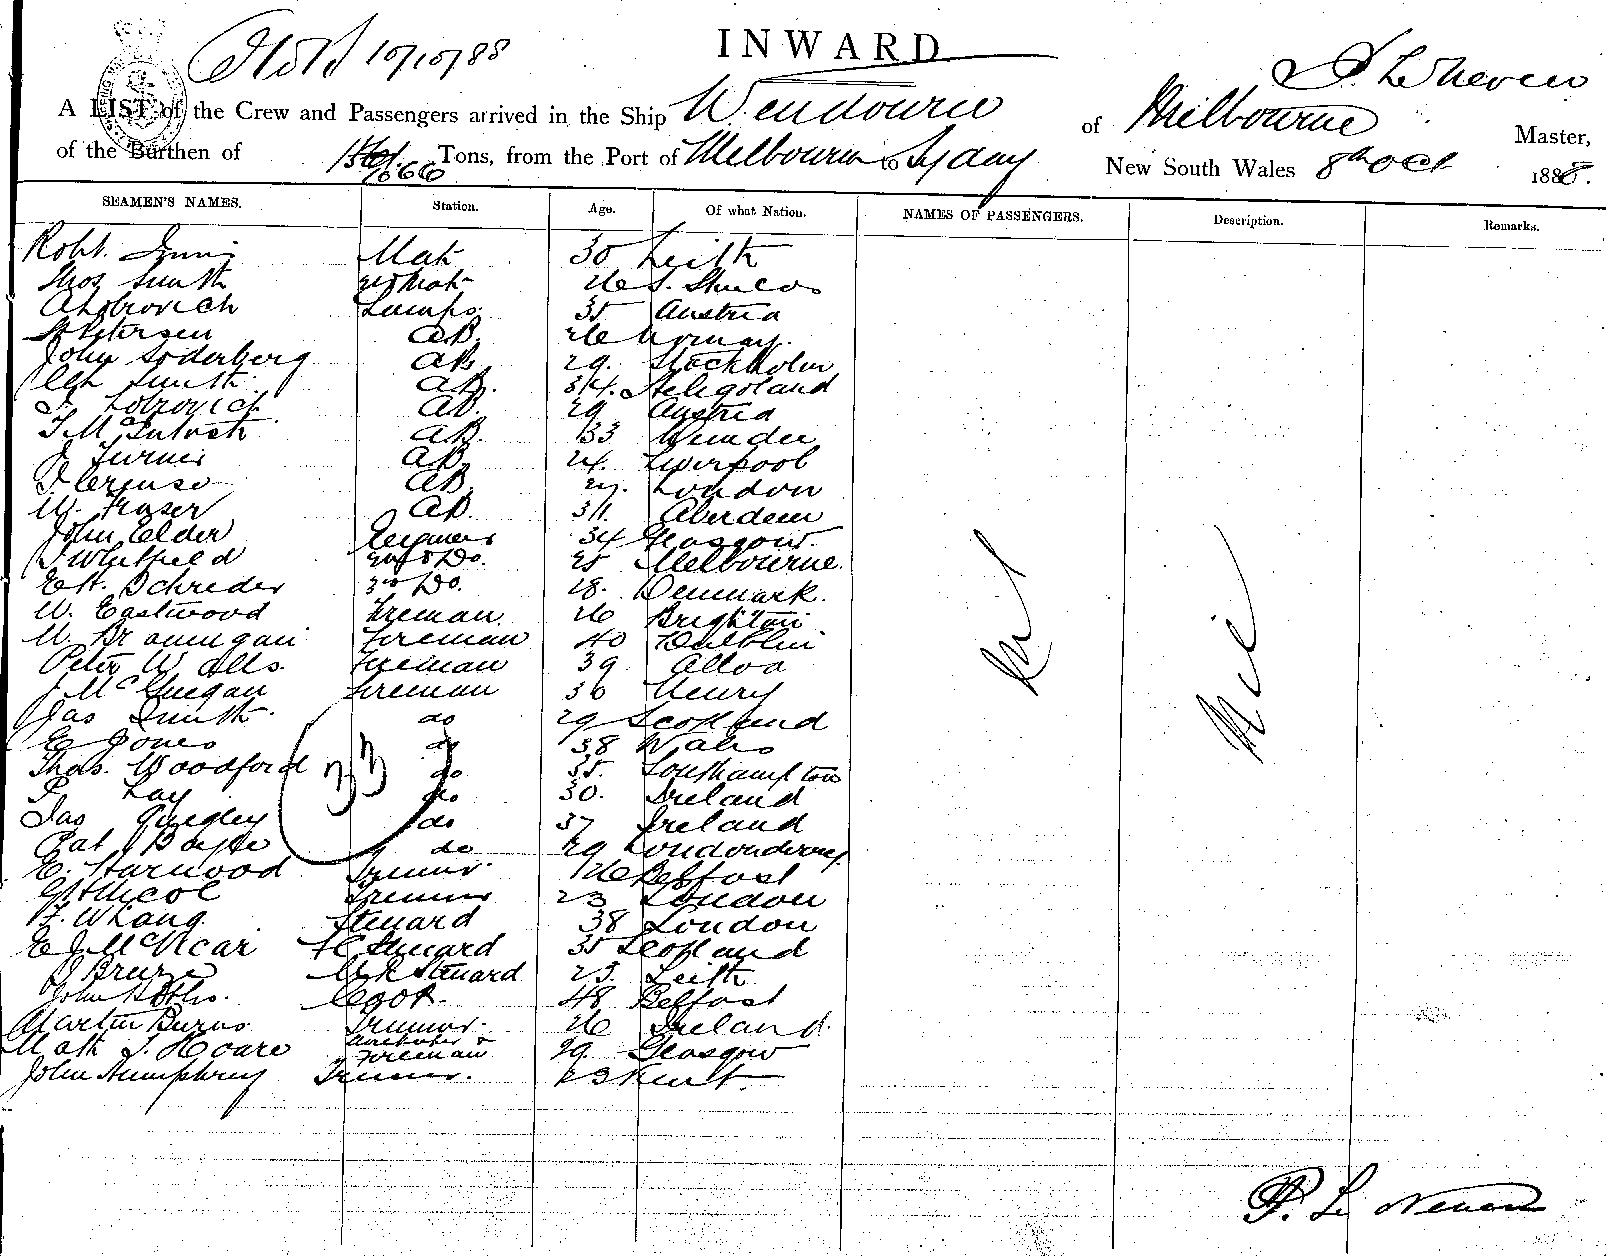 10/10/88
INWARD
A LIST of the Crew and Passengers arrived in the Ship Wendouree of Melbourne Master,
of the Burthen of 1066 Tons, from the Port of Melbourne to Sydney New South Wales 8th Oct 1888.
SEAMEN'S NAMES. Station. Age. Of what Nation. NAMES OF PASSENGERS. Description. Remarks.
Robt. Mate 30 Leith
Thos Smith 2nd Mate 26 S. Shields
Lamps 35 Austria
Petersen AB. 26 Norway.
John Soderberg AB. 29. Stockholm
Smith AB. 34. Heligoland
AB. 29 Austria
J McIntosh AB. 33
J Turner AB. 24. Liverpool
AB. London
W. Fraser AB. 31 Aberdeen
John Elder Engineer 34 Glasgow.
J Whitfield 2nd Do. 25 Melbourne.
E H. Schreder 3rd Do. 28. Denmark.
W. Eastwood Fireman. 26 Brighton
W. Brannigan Fireman 40 Dublin
Peter Walls Fireman 39 Alloa
J McGuegan Fireman 36 Newry
Jas Smith do 29 Scotland
E Jones do 38 Wales
Thos. Woodford do 35. Southampton
Lay do 30. Ireland
Jas Quigley do 37 Ireland
Pat Boyle do 29 Londonderry
E. Harwood Trimmer 26 Belfast
Nicol Trimmer 23 London
F. W Lang Steward 38 London
E J McVicar Steward 35 Scotland
Steward 25. Leith
John Cook. 48 Belfast
Martin Burns Trimmer. 26 Ireland.
Math J. Hoare Fireman 29 Glasgow
John Humphrey Trimmer. 23 Kent
33
Nil
Nil